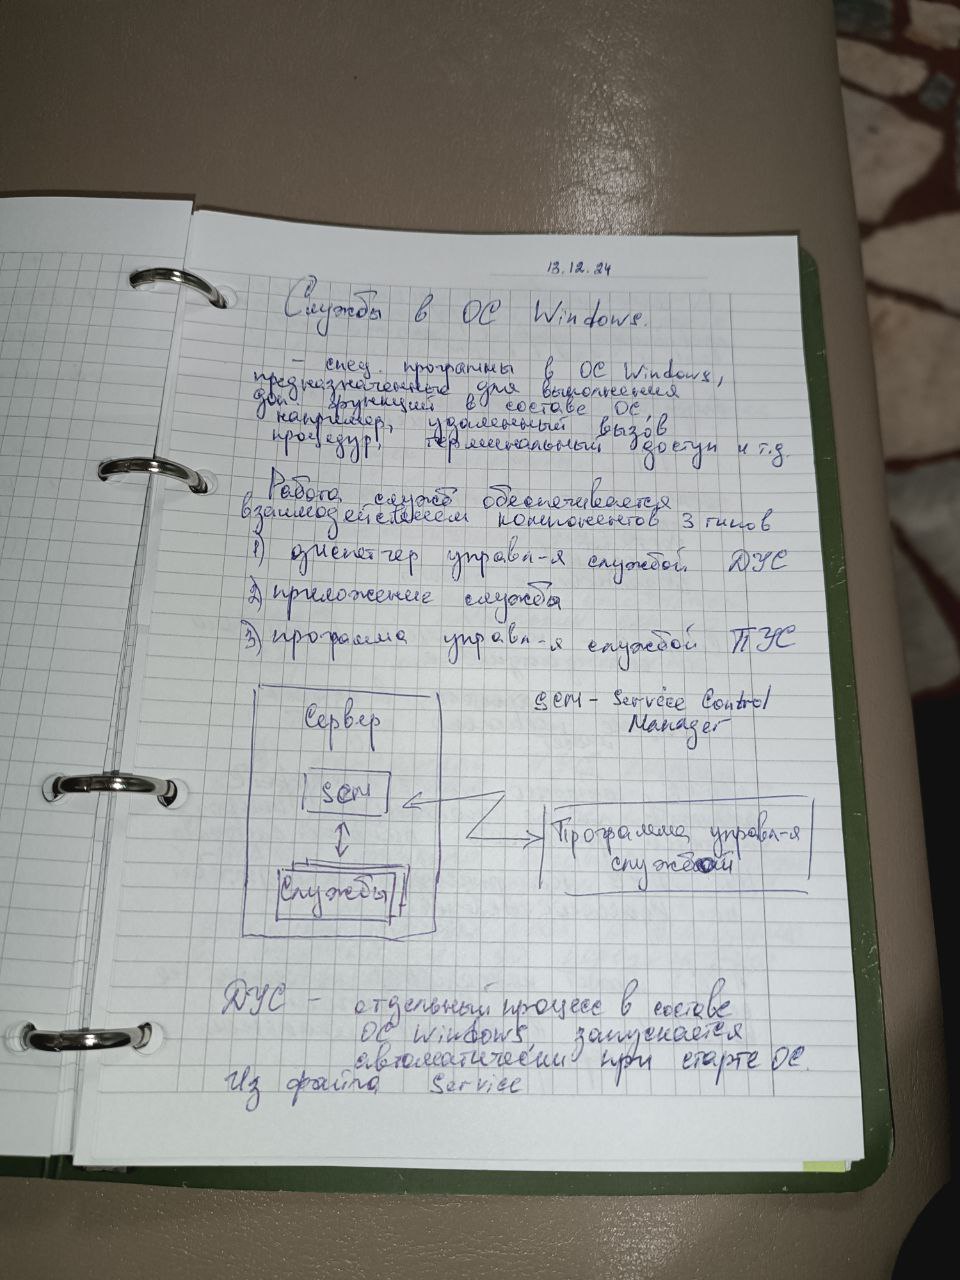 13.12.24
Службы в ОС Windows.
- спец. программы в ОС Windows,
предназначенные для выполнения
доп функций в составе ОС,
например, удаленный вызов
процедур, терминальный доступ и т.д.
Работа служб обеспечивается
взаимодействием компонентов 3 типов
1) диспетчер управл-я службой ДУС
2) приложение службы
3) программа управл-я службой ПУС
SCM - Service Control
Manager
Сервер
SCM
Программа управл-я
службой
Службы
ДУС - отдельный процесс в составе
ОС Windows, запускается
автоматически при старте ОС.
Из файла Service